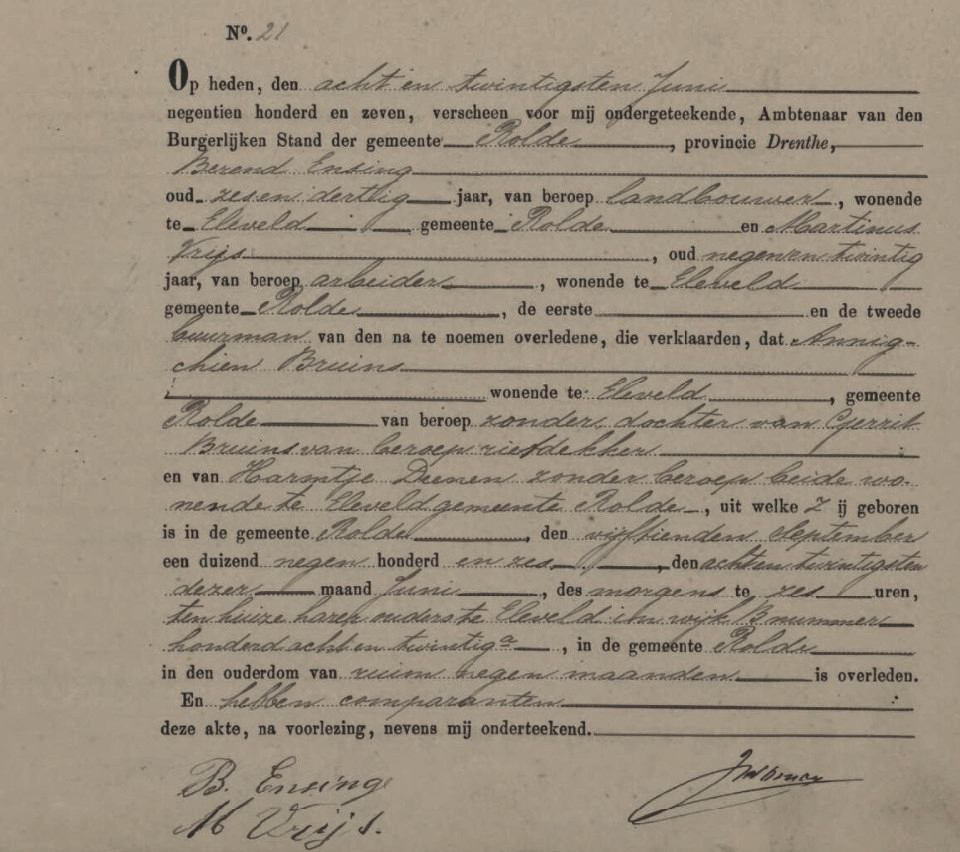 No. 21
Op heden, den acht en twintigsten Juni
negentien honderd en zeven, verscheen voor mij ondergeteekende, Ambtenaar van den
Burgerlijken Stand der gemeente Rolde, provincie Drenthe,
Berend Ensing
oud zes en dertig jaar, van beroep landbouwer, wonende
te Eleveld gemeente Rolde en Martinus
Vrijs, oud negen en twintig
jaar, van beroep arbeider, wonende te Eleveld
gemeente Rolde, de eerste en de tweede
buurman van den na te noemen overledene, die verklaarden, dat Annig-
chien Bruins
wonende te Eleveld, gemeente
Rolde van beroep zonder, dochter van Gerrit
Bruins van beroep rietdekker
en van Harmtje Deenen zonder beroep beide wo-
nende te Eleveld gemeente Rolde, uit welke Zij geboren
is in de gemeente Rolde, den vijftienden September
een duizend negen honderd en zes, den acht en twintigsten
dezer maand Juni, des morgens te zes uren,
ten huize harer ouders te Eleveld in wijk B nummer
honderd acht en twintig a, in de gemeente Rolde
in den ouderdom van ruim negen maanden is overleden.
En hebben comparanten
deze akte, na voorlezing, nevens mij onderteekend.
B. Ensing
M Vrijs.